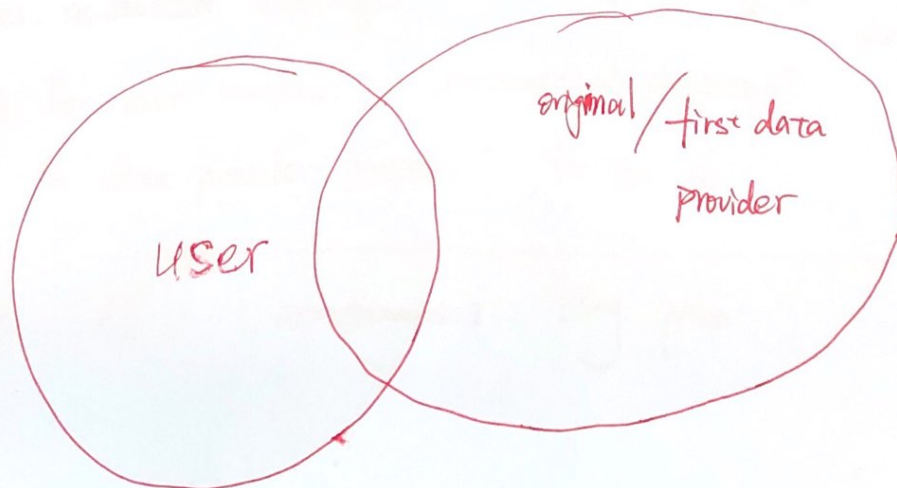 user
original/first data
provider